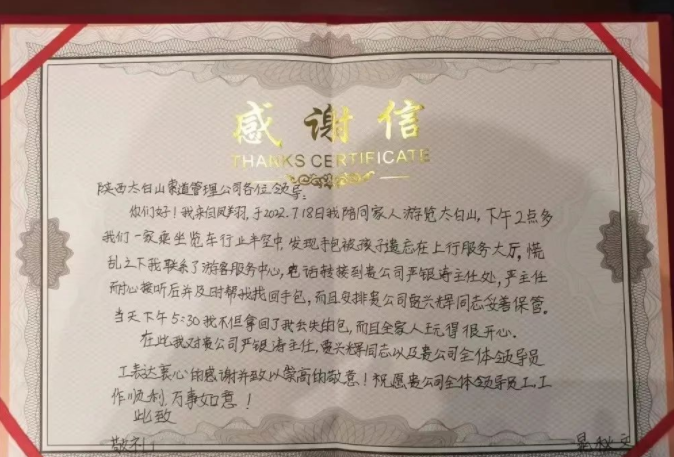 感谢信
THANKS CERTIFICATE
陕西太白山索道管理公司各位领导：
你们好！我来自凤翔，于2022.7.18日我陪同家人游览太白山，下午2点多
我们一家乘坐览车行止半空中，发现手包被孩子遗忘在上行服务大厅，慌
乱之下我联系了游客服务中心，电话转接到贵公司严银涛主任处，严主任
耐心接听后并及时帮我找回手包，而且安排贵公司 兴辉同志妥善保管。
当天下午5:30我不但拿回了我丢失的包，而且全家人玩得很开心。
在此我对贵公司严银涛主任， 兴辉同志以及贵公司全体领导员
工表达衷心的感谢并致以崇高的敬意！祝愿贵公司全体领导员工工
作顺利，万事如意！
此致
敬礼
秋